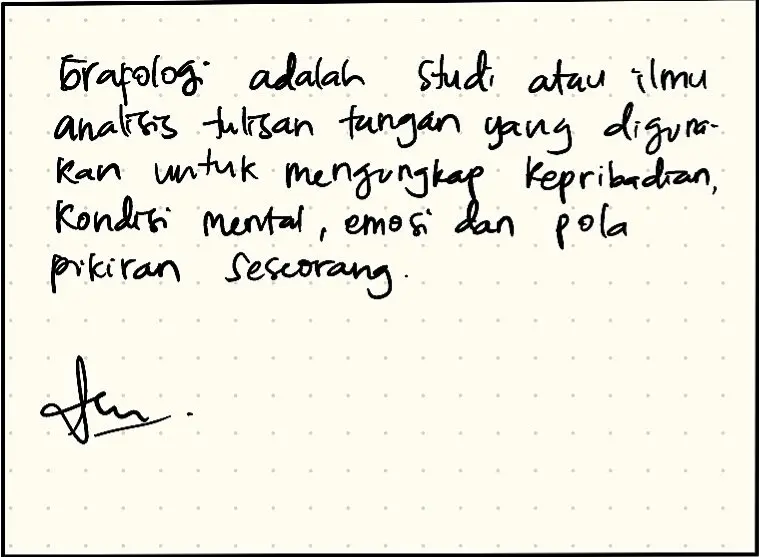 Grafologi adalah studi atau ilmu
analisis tulisan tangan yang diguna-
kan untuk mengungkap kepribadian,
kondisi mental, emosi dan pola
pikiran seseorang.